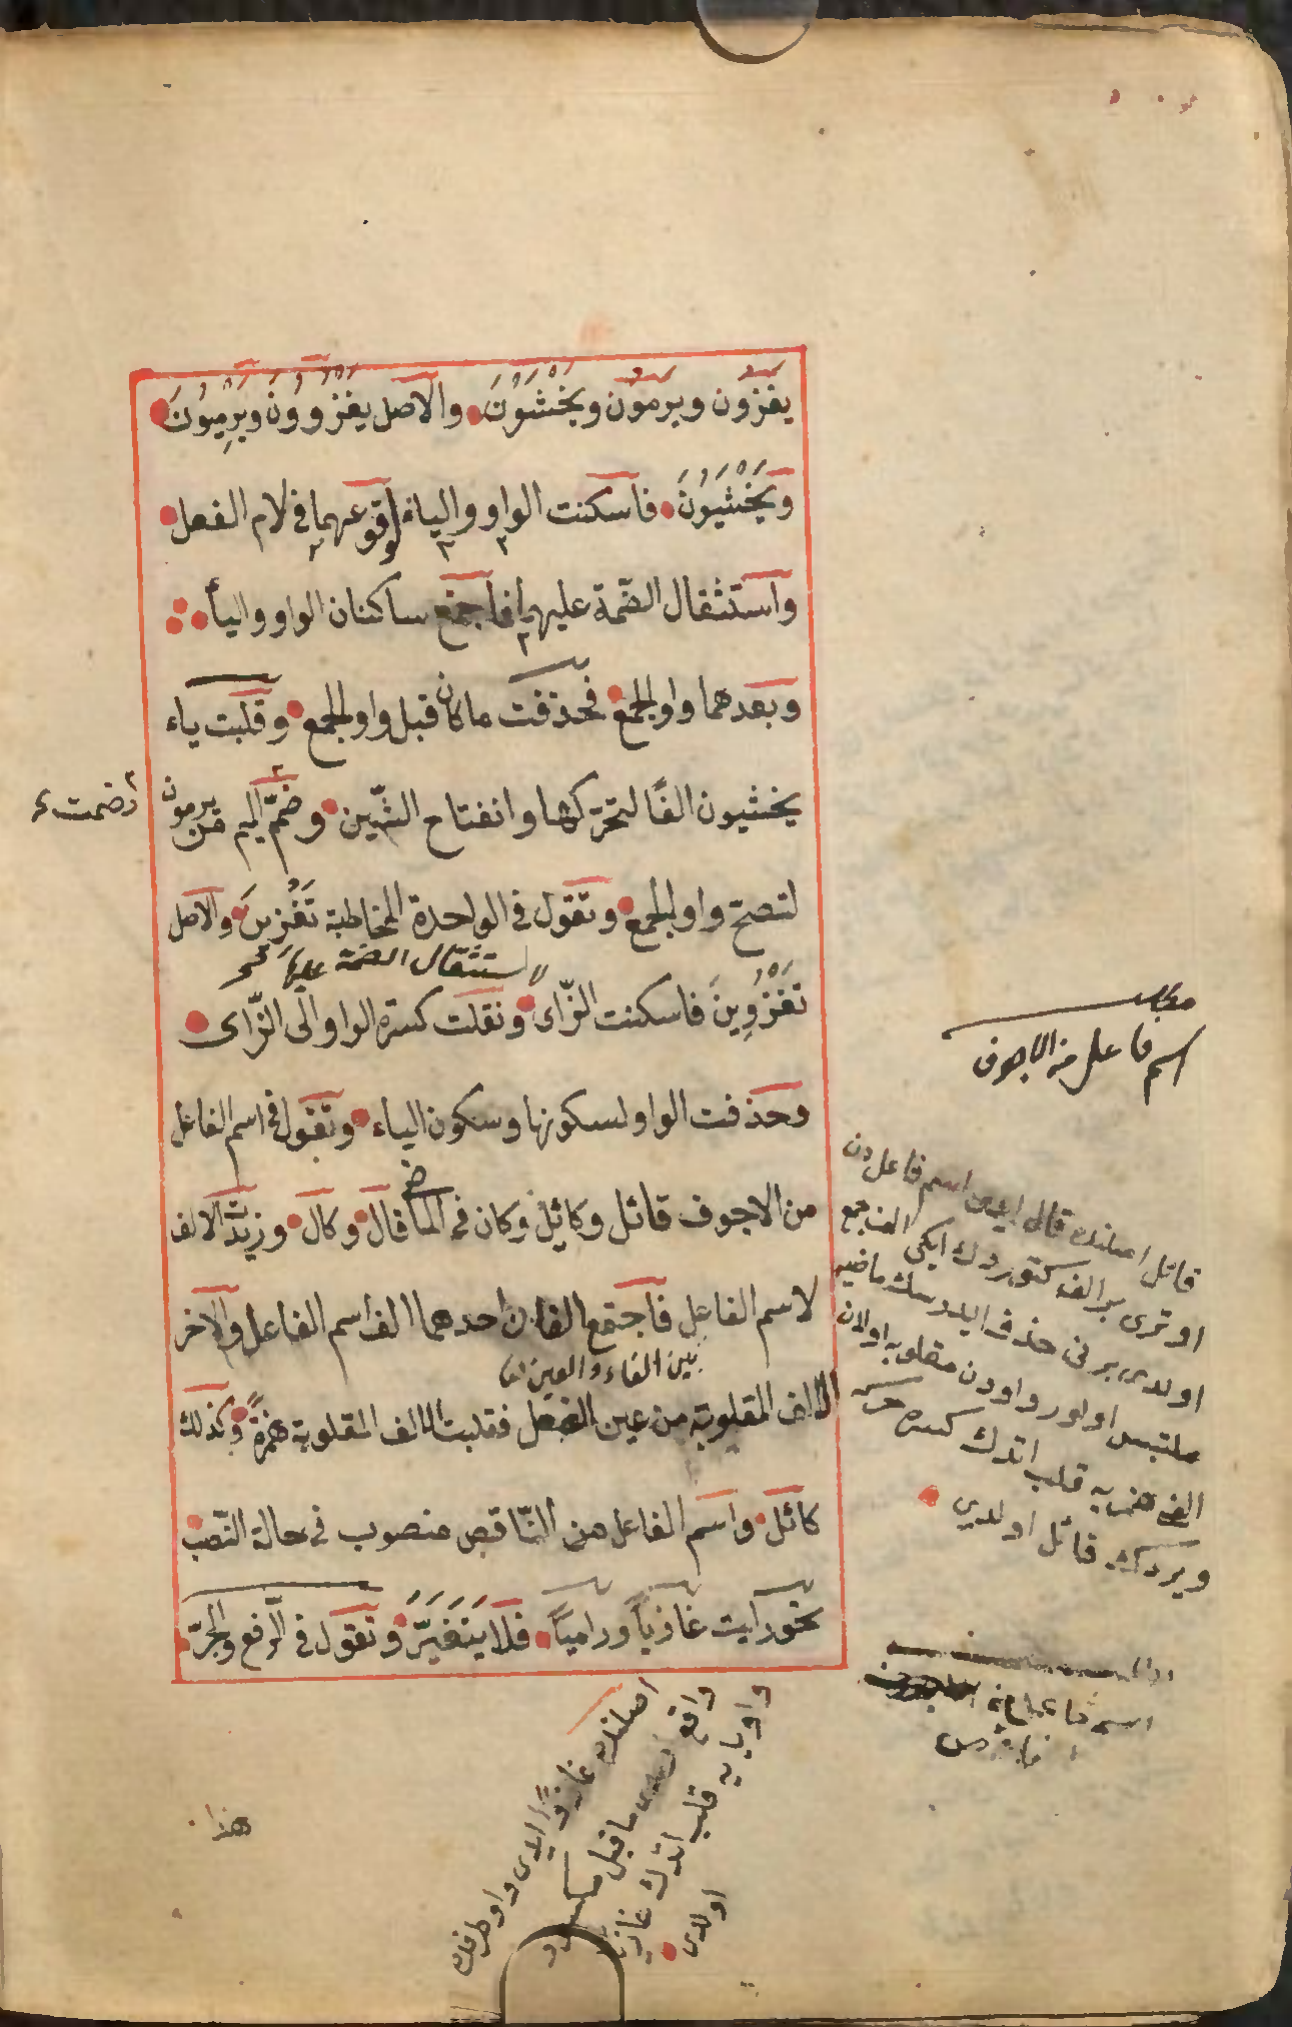 يغزون ويرمون ويَخْشَوْنَ والاصل يغْزُوُونَ ويَرْمِيُونَ
ويَخْشَيُونَ فاسكنت الواو والياء لوقوعهما فى لام الفعل
واستثقال الضمّة عليهما فاجتمع ساكنان الواو والياء
وبعدهما واو الجمع فحذفت ما كان قبل واو الجمع وقلبت ياء
يخشيون الفًا لتحرّكها وانفتاح الشّين وضمّ الميم من يرمون
وضمت
لتصحّ واو الجمع وتقول فى الواحدة المخاطبة تَغْزِينَ والاصل
لاستثقال الضمة عليها
تَغْزُوِينَ فاسكنت الزّاى ونقلت كسرة الواو الى الزّاى
وحذفت الواو لسكونها وسكون الياء وتقول فى اسم الفاعل
من الاجوف قائل وكائل وكان فى الماضى قال وكال وزيدت الالف
لاسم الفاعل فاجتمع الفان احدهما الف اسم الفاعل والآخر
بين الفاء والعين
الالف المقلوبة من عين الفعل فقلبت الالف المقلوبة همزةً وكذلك
كائل واسم الفاعل من النّاقص منصوب فى حالة النّصب
نحو رايت غازياً ورامياً فلا يَتَغَيَّرُ وتقول فى الرّفع والجرّ
مطلب
اسم فاعل من الاجوف
قائل اصلنده قال ايدى اسم فاعل دن
اوترى بر الف كتوردك ايكى الف جمع
اولدى برنى حذف ايلدسك ماضيه
ملتبس اولور واودن مقلوب اولان
الفى همزيه قلب اتدك كسره حركه
ويردك قائل اولدى
اسم فاعل من
اصلنده غازوًا ايدى واو طرفده
واقع اولدى ما قبلى مكسور
واوى يايه قلب اتدك غازيا
اولدى
هذا